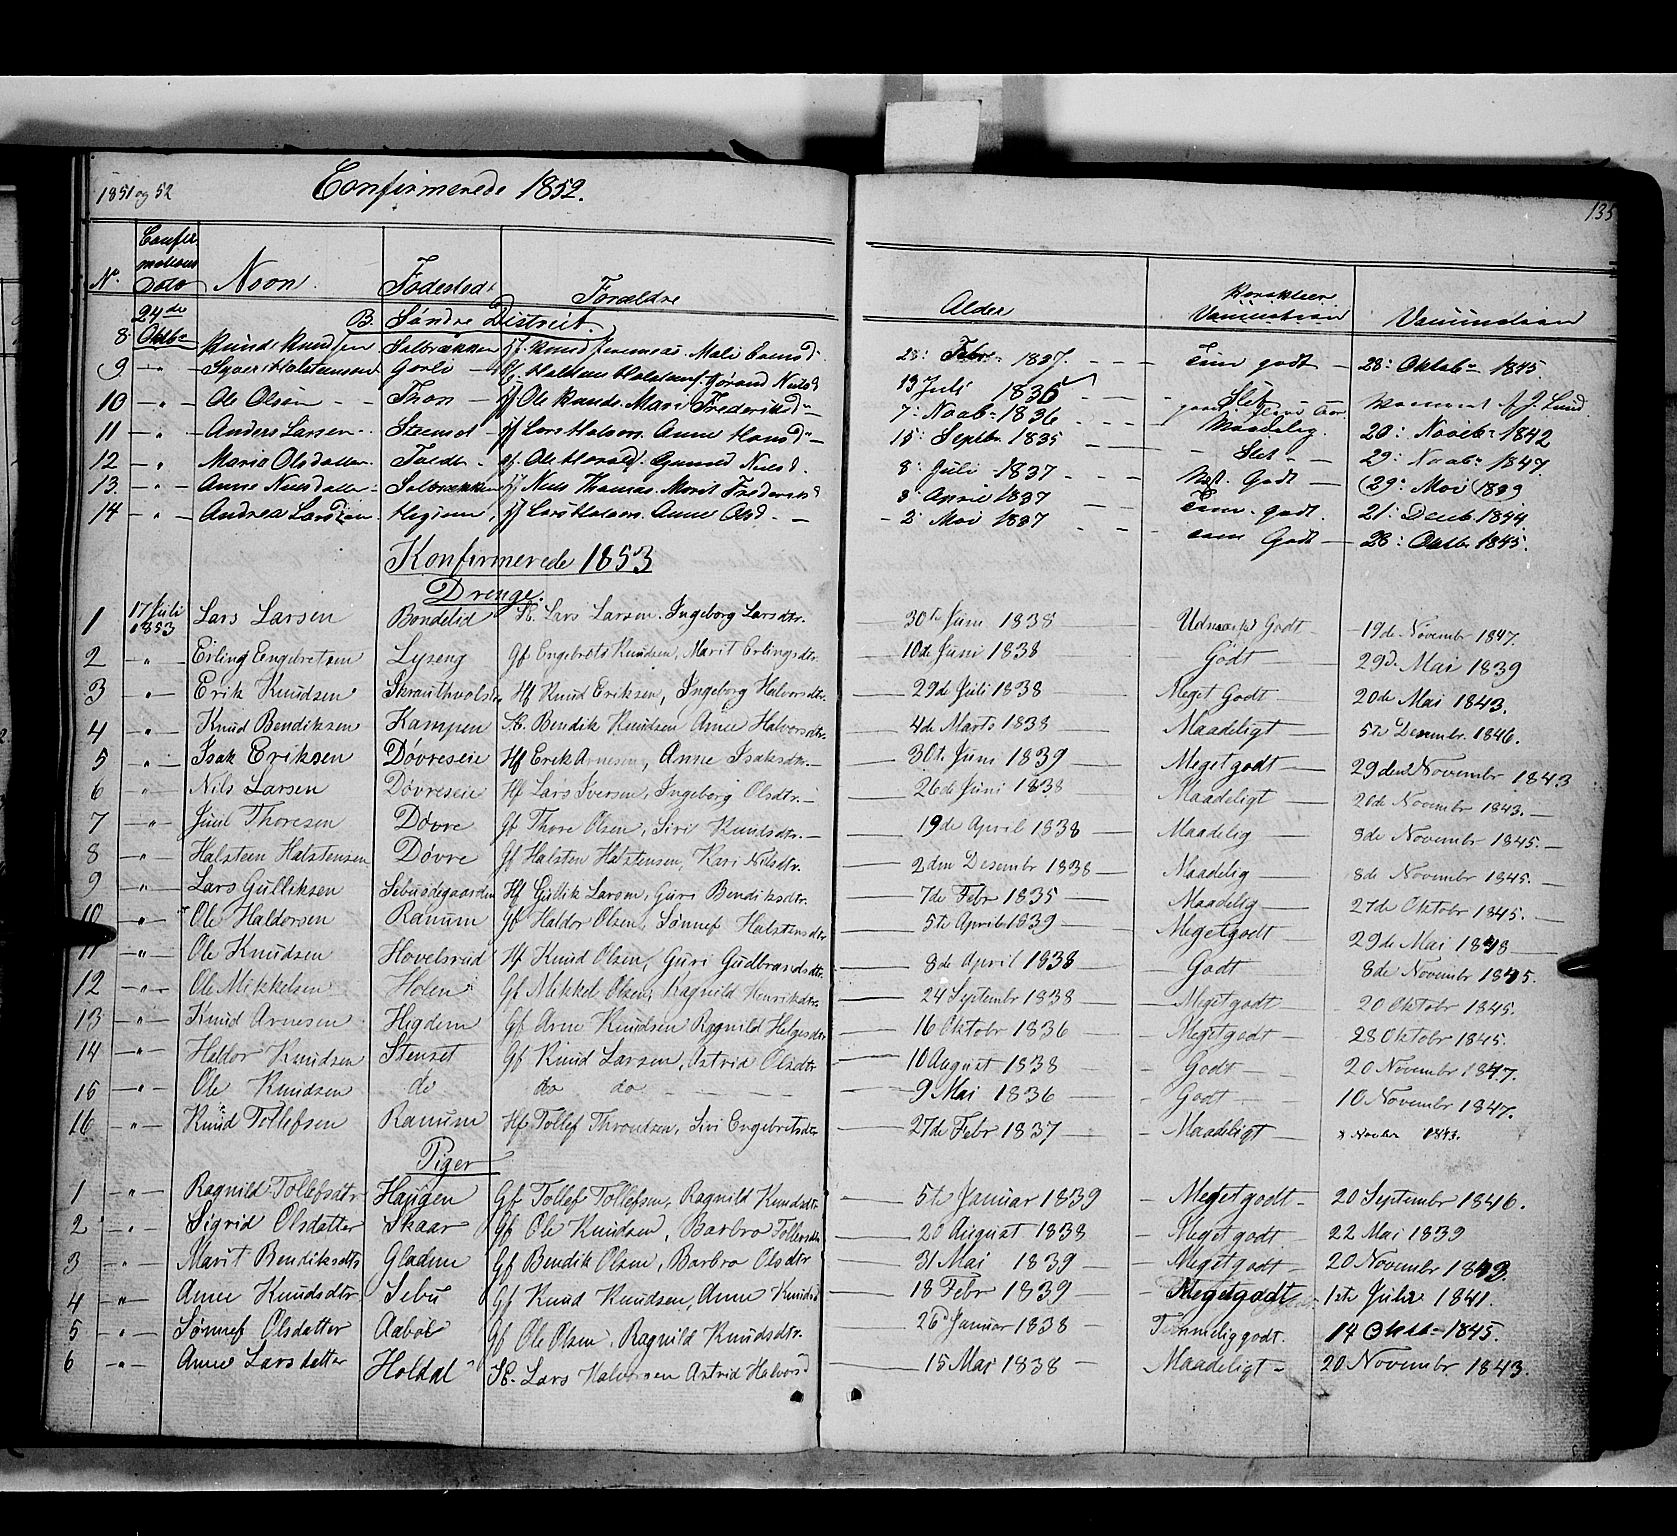 1851 og 52 Confirmerede 1852. 135
No. Confirmations Dato Navn Fødested Forældre Alder Vaccination
24de Oktbr B. Søndre District.
8 Knud Knudsen Solbrækken 28: Febr 1837 Tem godt 28: Oktobr 1845
9 " Halstensen 13 Juli 1836 Slet
10 " Ole Olsen Gf Ole Knuds. Mari Frederiksd 7: Novb: 1836 Maadelig. 20: Novbr 1842
11 " Anders Larsen Steenset Gf Lars Halvors. Anne Hansd 15: Septbr. 1835 Slet 29: Novb: 1847.
12 " Maria Olsdatter 8: Juli 1837 Godt (29: Mai 1839
13. " Anne Nielsdatter Solbrækken Gf Niels Thomas. Marit Frederiks 8 April 1837 Tem. godt. 21: Decb. 1844.
14 " Andrea Larsdatter Gf Lars Halvors. Anne Olsd. 2: Mai 1837 Tem Godt 28: Oktbr 1845.
Konfirmerede 1853
Drenge.
1 17 Juli 1853 Lars Larsen Bondelid Lars Larsen, Ingeborg Larsdtr. 30te Juni 1838 Udmærk Godt 19de Novembr 1847.
2 " Erling Engebretsen Lyseng Gf Engebret Knudsen, Marit Erlingsdtr. 10de Juni 1838 Godt 29d. Mai 1839
3 " Erik Knudsen Skrauthvolseie Hf Knud Eriksen, Ingeborg Halvorsdtr. 29de Juli 1838 Meget Godt 20de Mai 1843.
4 " Knud Bendiksen Kampen Bendik Knudsen Anne Halvorsdtr. 4de Marts 1838 Maadeligt 5te Desembr. 1846.
5 " Isak Eriksen Døvreseie Hf Erik Arnesen, Anne Isaksdtr. 30te Juni 1839 Megetgodt 29den Novembr 1843
6 " Nils Larsen Døvreseie Hf Lars Iversen, Ingeborg Olsdtr. 26de Juni 1838 Maadeligt 20de Novembr 1843.
7 " Juul Thoresen Døvre Gf Thore Olsen, Siri Knudsdtr. 19de April 1838 Maadelig 8de Novembr 1845.
8 " Halsteen Halstensen Døvre Gf Halsten Halstensen, Kari Nilsdtr. 2den Desembr 1838 Maadelig 8de Novembr 1845.
9 " Lars Gulliksen Sebuødegaarden Hf Gullik Larsen, Guri Bendiksdtr. 7de Febr 1835 Maadelig 27de Oktobr 1845.
10 " Ole Haldorsen Ranum Gf Haldor Olsen, Sønnef Halstensdtr 5te April 1839 Megetgodt 29de Mai 1848
11 " Ole Knudsen Hovelsrud Hf Knud Olsen, Guri Gudbrandsdtr. 8de April 1838 Godt 8de Novembr 1845.
12 " Ole Mikkelsen Holen Gf Mikkel Olsen, Ragnild Henriksdtr. 24 Septembr 1838 Megetgodt 20 Oktobr 1845.
13 " Knud Arnesen Higdem Gf Arne Knudsen Ragnild Helgesdtr 16 Oktobr 1836 Megetgodt 28 Oktobr 1845.
14 " Haldor Knudsen Stenset Gf Knud Larsen, Astrid Olsdtr 10 August 1838 Godt 20 Novembr 1847.
15 " Ole Knudsen do do do 9 Mai 1836 Godt 10 Novembr 1847.
16 " Knud Tollefsen Ranum Hf Tollef Throndsen, Sivi Engebretsdtr 27de Febr 1837 Maadeligt 8 Novbr 1843.
Piger
1 " Ragnild Tollefsdtr Haugen Gf Tollef Tollefsen, Ragnild Knudsdtr 5te Januar 1839 Megetgodt 20 Septembr 1846.
2 " Sigrid Olsdatter Skaar Gf Ole Knudsen, Barbro Tollefsdtr 20 August 1838 Megetgodt 22 Mai 1839
3 " Marit Bendiksdtr Gladem Gf Bendik Olsen, Barbro Olsdtr 31 Mai 1839 Megetgodt 20 Novembr 1843.
4 " Anne Knudsdtr Sebu Gf Knud Knudsen, Anne Knudsd 18 Febr 1839 Megetgodt 1ste Juli 1841.
5 " Sønnef Olsdatter Aabol Gf Ole Olsen, Ragnild Knudsdtr. 26d Januar 1838 Temmelig godt. 14 1845.
6 " Anne Larsdatter Holdal Lars Halvorsen Astrid Halvorsd 15 Mai 1838 Maadeligt 20 Novembr 1843.